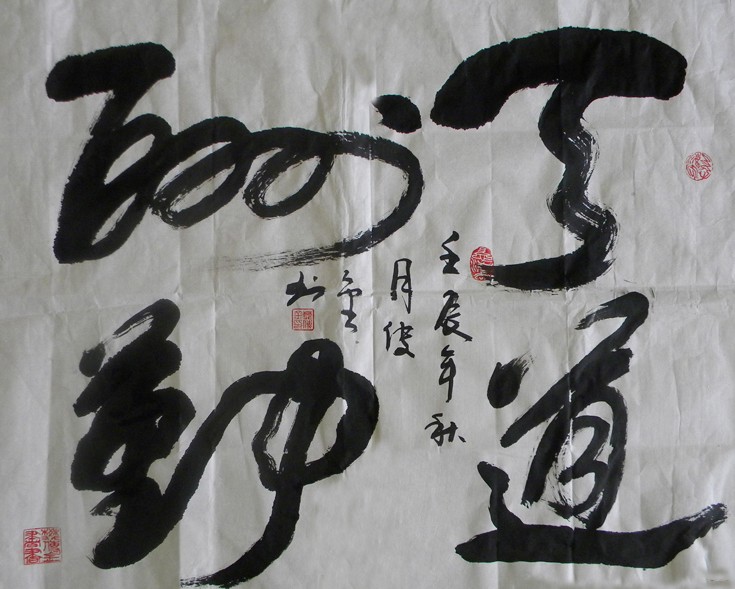 天道
酬勤
壬辰年秋
月
书